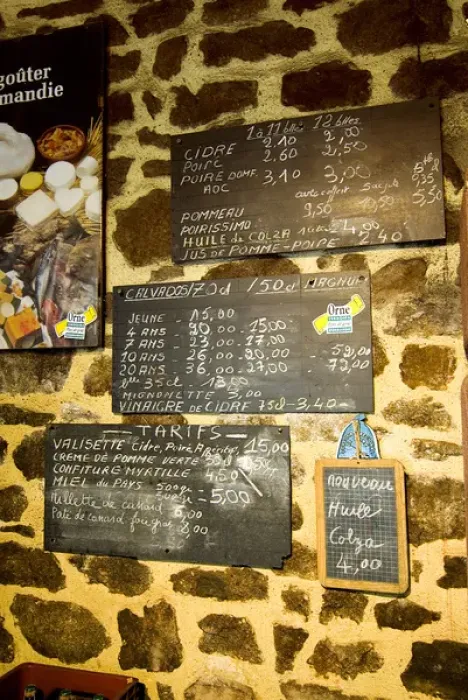 goûter
mandie
1 à 11 blles 12 blles
CIDRE 2,10 2,00
POIRÉ 2,60 2,50
POIRE DOMF. 3,10 3,00
AOC
carte coffret
POMMEAU 9,50
POIRISSIMO
HUILE de COLZA 4,00
JUS de POMME-POIRE 2.40
0,35
5,50
CALVADOS/70cl /50cl MAGNUM
JEUNE - 15,00
4 ANS - 20,00 - 15,00
7 ANS - 23,00 - 17,00
10 ANS - 26,00 - 20,00 - 59,00
20 ANS - 36,00 - 27,00 - 79,00
Blle 35cl - 13,00
MIGNONETTE 3,00
VINAIGRE de CIDRE 75cl - 3,40 -
Orne
Orne
- TARIFS -
VALISETTE Cidre, Poiré, 15,00
CREME DE POMME VERTE
CONFITURE MYRTILLE 4,50
MIEL du PAYS 500gr = 5,00
Rillette de canard 6,00
Paté de canard foie gras 8,00
nouveau
Huile
Colza
4,00